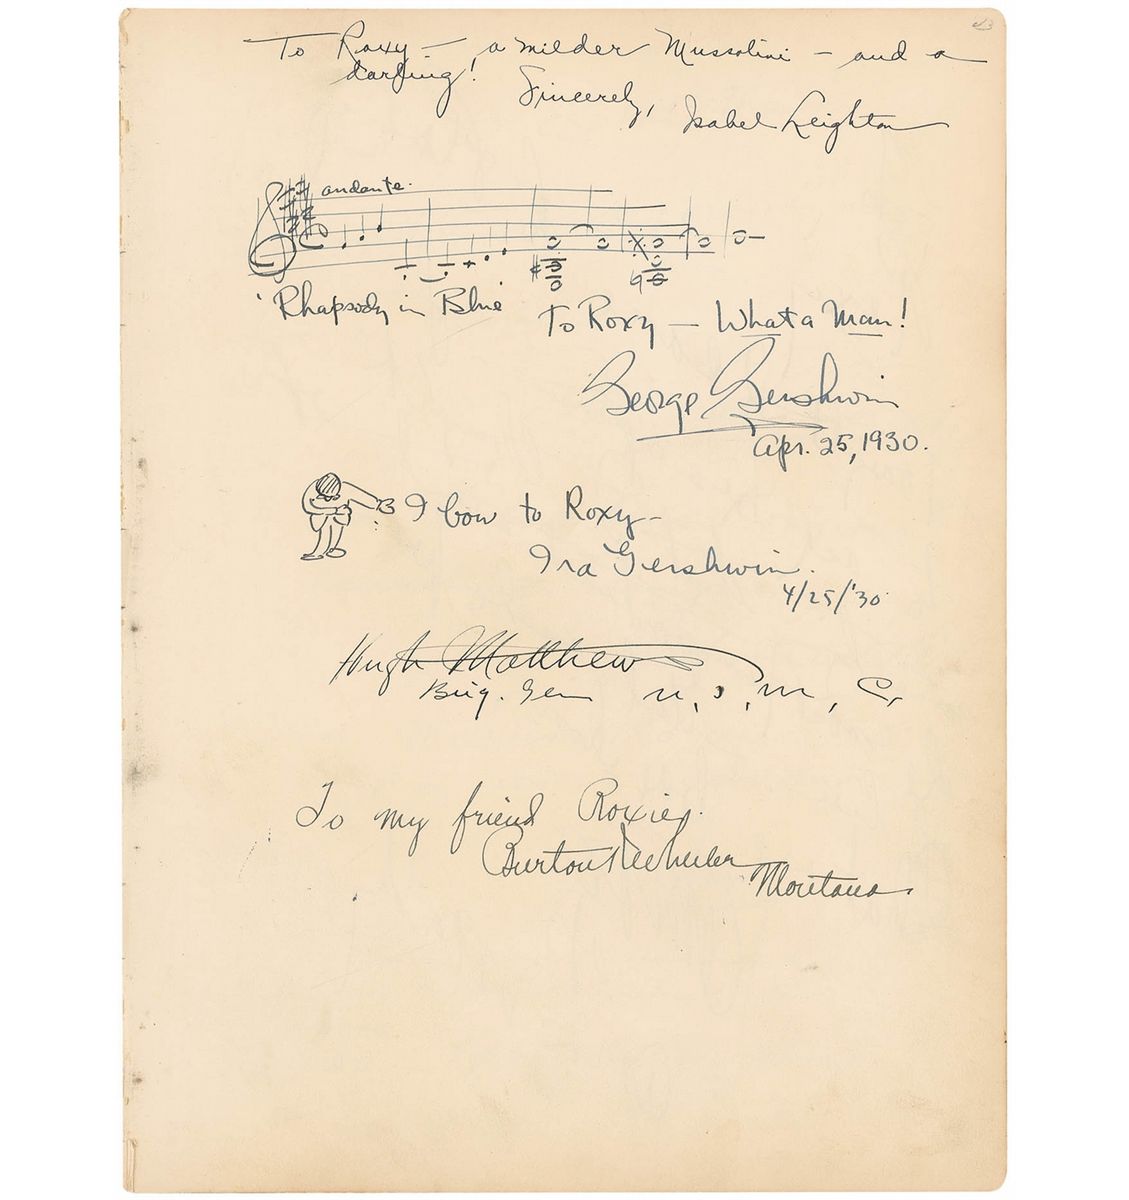 To Roxy — a milder Mussolini — and a
darling!
Sincerely, Isabel Leighton
andante.
'Rhapsody in Blue'
To Roxy — What a Man!
George Gershwin
Apr. 25, 1930.
I bow to Roxy —
Ira Gershwin.
4/25/'30
Hugh Matthews
Brig. Gen U.S.M.C.
To my friend Roxie,
Burton K Wheeler
Montana